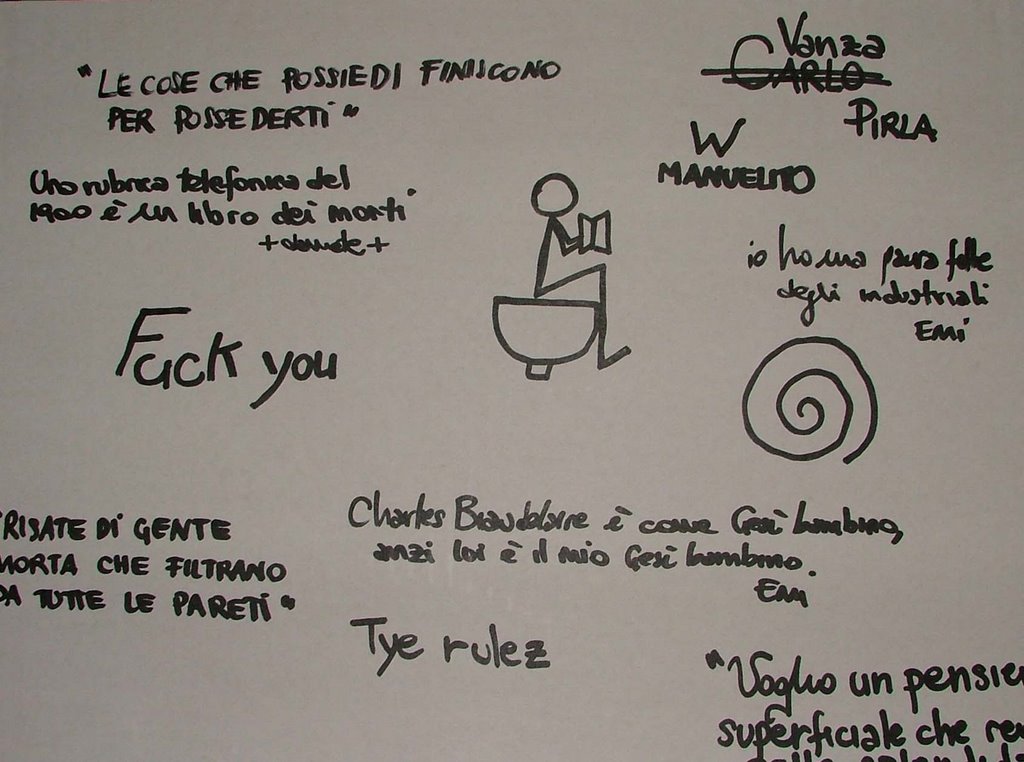 "LE COSE CHE POSSIEDI FINISCONO
PER POSSEDERTI"
Vanza
CARLO
PIRLA
W
MANUELITO
Una rubrica telefonica del
1900 è un libro dei morti.
+davide+
io ho una paura folle
degli industriali
Emi
Fuck you
"RISATE DI GENTE
MORTA CHE FILTRANO
DA TUTTE LE PARETI"
Charles Brawdelaire è come Gesù bambino,
anzi lui è il mio Gesù bambino.
Emi
Tye rulez
"Voglio un pensie
superficiale che re